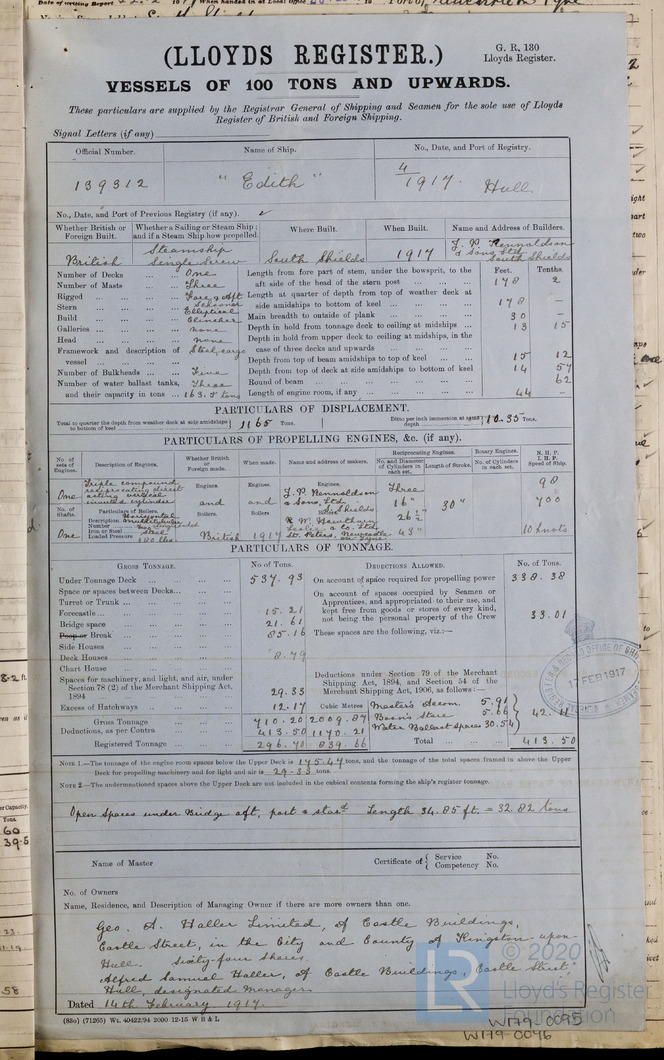 (LLOYDS REGISTER.)
G. R. 130
Lloyds Register.
VESSELS OF 100 TONS AND UPWARDS.
These particulars are supplied by the Registrar General of Shipping and Seamen for the sole use of Lloyds
Register of British and Foreign Shipping.
Signal Letters (if any)
Official Number. Name of Ship. No., Date, and Port of Registry.
139312 "Edith" 4/1917. Hull.
No., Date, and Port of Previous Registry (if any).
Whether British or Foreign Built. Whether a Sailing or Steam Ship; and if a Steam Ship how propelled. Where Built. When Built. Name and Address of Builders.
British Steamship Single Screw South Shields 1917 J. P. Rennoldson & Sons Ltd South Shields
Number of Decks ... One
Number of Masts ... Three
Rigged ... Fore & Aft Schooner
Stern ... Elliptical
Build ... Clincher
Galleries ... none
Head ... none
Framework and description of vessel ... Steel, cargo
Number of Bulkheads ... Five
Number of water ballast tanks, and their capacity in tons ... Three 163.5 tons
Feet. Tenths.
Length from fore part of stem, under the bowsprit, to the aft side of the head of the stern post ... 178 2
Length at quarter of depth from top of weather deck at side amidships to bottom of keel ... 178 -
Main breadth to outside of plank ... 30 -
Depth in hold from tonnage deck to ceiling at midships ... 13 15
Depth in hold from upper deck to ceiling at midships, in the case of three decks and upwards
Depth from top of beam amidships to top of keel ... 15 12
Depth from top of deck at side amidships to bottom of keel 14 57
Round of beam ... 62
Length of engine room, if any ... 44 -
PARTICULARS OF DISPLACEMENT.
Total to quarter the depth from weather deck at side amidships to bottom of keel 1165 Tons. Ditto per inch immersion at same depth 10.35 Tons.
PARTICULARS OF PROPELLING ENGINES, &c. (if any).
No. of sets of Engines. Description of Engines. Whether British or Foreign made. When made. Name and address of makers. Reciprocating Engines. Rotary Engines. N. H. P. I. H. P. Speed of Ship.
No. and Diameter of Cylinders in each set. Length of Stroke. No. of Cylinders in each set.
One Triple compound reciprocating direct acting vertical inverted cylinder Engines. and Engines. and Engines. J. P. Rennoldson & Sons, Ltd S. Shields Three 16" 26 1/2" 43" 30" 98 700
No. of Shafts. Particulars of Boilers.
Description Horizontal multitubular
Number One
Iron or Steel Steel
Loaded Pressure 180 lbs
One Boilers. British Boilers 1917 Boilers R. W. Hawthorn Leslie & Co. Ltd St. Peters, Newcastle on Tyne 10 knots
PARTICULARS OF TONNAGE.
GROSS TONNAGE. No of Tons. DEDUCTIONS ALLOWED. No. of Tons.
Under Tonnage Deck ... 537.93
Space or spaces between Decks ...
Turret or Trunk ...
Forecastle ... 15.21
Bridge space ... 21.61
Poop or Break ... 85.16
Side Houses
Deck Houses ... 8.79
Chart House
Spaces for machinery, and light, and air, under Section 78 (2) of the Merchant Shipping Act, 1894 29.33
Excess of Hatchways ... 12.17
Cubic Metres
Gross Tonnage ... 710.20 2009.87
Deductions, as per Contra ... 413.50 1170.21
Registered Tonnage ... 296.70 839.66
On account of space required for propelling power 338.38
On account of spaces occupied by Seamen or Apprentices, and appropriated to their use, and kept free from goods or stores of every kind, not being the personal property of the Crew 33.01
These spaces are the following, viz.:—
Deductions under Section 79 of the Merchant Shipping Act, 1894, and Section 54 of the Merchant Shipping Act, 1906, as follows:—
Master's Accom. 5.91
Bosn's Store 5.66
Water Ballast Spaces 30.54
42.11
Total ... 413.50
17 FEB 1917
NOTE 1.—The tonnage of the engine room spaces below the Upper Deck is 175.47 tons, and the tonnage of the total spaces framed in above the Upper
Deck for propelling machinery and for light and air is 29.33 tons.
NOTE 2.—The undermentioned spaces above the Upper Deck are not included in the cubical contents forming the ship's register tonnage.
Open Spaces under Bridge aft, port & starbd Length 34.85 ft. = 32.82 tons
Name of Master Certificate of { Service No. Competency No.
No. of Owners
Name, Residence, and Description of Managing Owner if there are more owners than one.
Geo. A. Haller Limited, of Castle Buildings,
Castle Street, in the City and County of Kingston upon
Hull. Sixty-four Shares
Alfred Samuel Haller, of Castle Buildings, Castle Street,
Hull, designated manager.
Dated 14th February 1917.
(88o) (71265) Wt. 40422/94 2000 12-15 W B & L
© 2020
LR
Lloyd's Register
Foundation
W179-0095
W179-0096